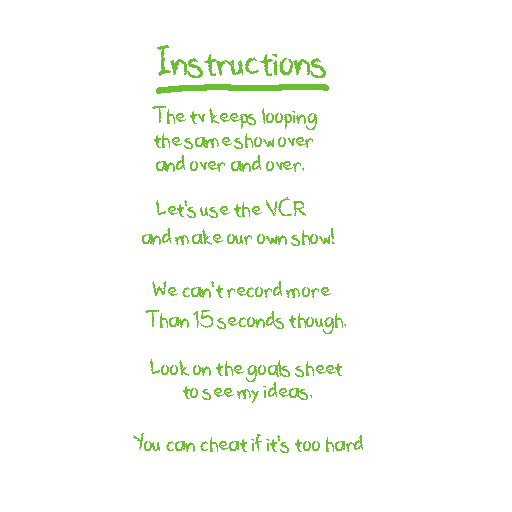 Instructions
The tv keeps looping
the same show over
and over and over.
Let's use the VCR
and make our own show!
We can't record more
Than 15 seconds though.
Look on the goals sheet
to see my ideas.
You can cheat if it's too hard